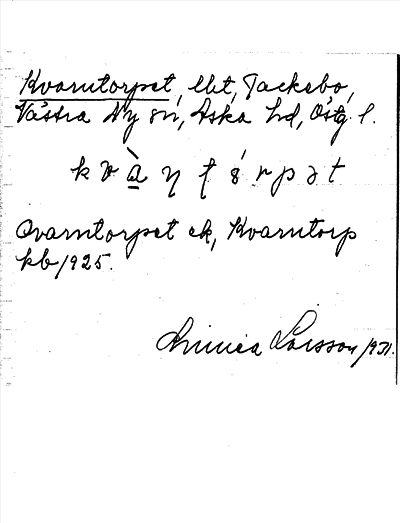 Kvarntorpet, lht, Tackebo,
Västra Ny sn, Aska hd, Östg l.
Qvarntorpet ek, Kvarntorp
kb 1925.
Linnea Larsson 1931.